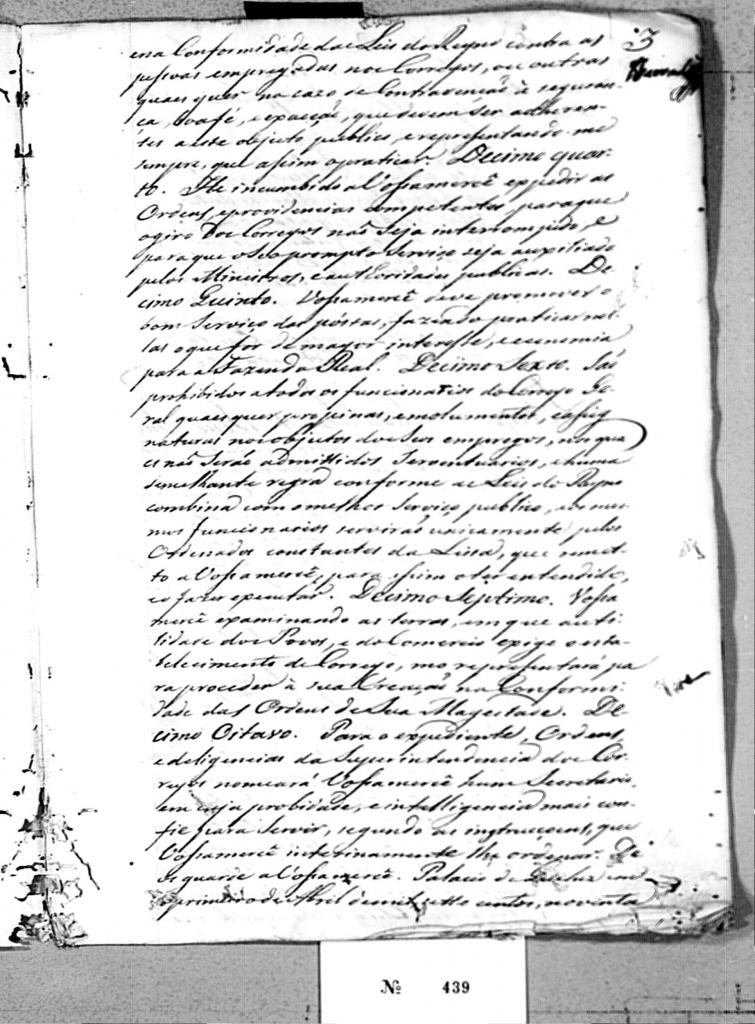 3
e na Conformidade das Leis do Reyno contra as
pessoas empregadas nos Correyos, ou outras
quaes quer no cazo de Contravenção á seguran-
ça, boa fé, e exacção, que devem ser adheren-
tes a este objecto publico, e representando-me
sempre, que assim o praticar. Decimo quar-
to. He incumbido a Vossamercê expedir as
Ordens, e providencias competentes, para que
o giro dos Correyos naõ seja interrompido, e
para que o seo prompto Serviço seja auxiliado
pelos Ministros, e authoridades publicas. De-
cimo Quinto. Vossamercê deve promover o
bom Serviço das póstas, fazendo praticar nel-
las o que for de mayor interesse, e economia
para a Fazenda Real. Decimo Sexto. Saõ
prohibidos a todos os funcionarios do Correyo Ge-
ral quaes quer propinas, emolumentos, e assig-
naturas nos objectos dos Seos empregos, nos qua-
es naõ Seraõ admittidos Serventuarios, e huma
semelhante regra conforme as Leis do Reyno
combina com o melhor Serviço publico, e os mes-
mos funcionarios serviráõ unicamente pelos
Ordenados constantes da Lista, que remet-
to a Vossamercê, para assim o ter entendido,
e o fazer executar. Decimo Septimo. Vossa-
mercê examinando as terras, em que a uti-
lidade dos Povos, e do Comercio exige o esta-
belecimento de Correyo, mo representará pa-
ra proceder á sua Creaçaõ na Conformi-
dade das Ordens de Sua Magestade. De-
cimo Oitavo. Para o expediente, Ordens,
e deligencias da Superintendencia dos Cor-
reyos nomeará Vossamercê hum Secretario,
em cuja probidade, e intelligencia mais con-
fie para Servir, segundo as instrucçoens, que
Vossamercê interinamente lhe ordenar. De-
os guarde a Vossamercê. Palacio de Queluz em
o primeiro de Abril de mil, sette centos, noventa
Nº 439